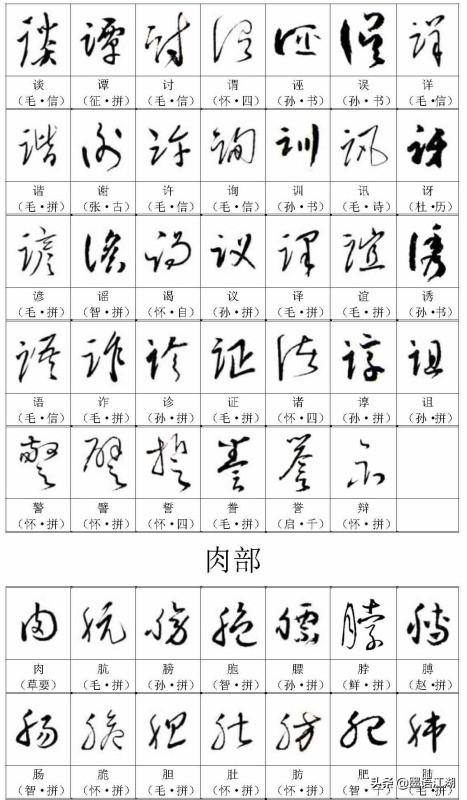 谈 谭 讨 谓 诬 误 详
（毛·信） （征·拼） （毛·信） （怀·四） （孙·书） （孙·书） （毛·信）
谐 谢 许 询 训 讯 讶
（毛·拼） （张·古） （毛·信） （毛·信） （孙·书） （毛·诗） （杜·历）
谚 谣 谒 议 译 谊 诱
（毛·拼） （智·拼） （怀·自） （孙·拼） （毛·拼） （毛·拼） （孙·书）
语 诈 诊 证 诸 谆 诅
（毛·信） （毛·拼） （孙·拼） （毛·拼） （怀·四） （孙·拼） （孙·拼）
警 譬 誓 誊 誉 辩
（怀·拼） （怀·拼） （怀·四） （毛·拼） （启·千） （怀·拼）
肉部
肉 肮 膀 胞 膘 脖 膊
（草要） （毛·拼） （孙·拼） （智·拼） （孙·拼） （鲜·拼） （赵·拼）
肠 脆 胆 肚 肪 肥 肺
（智·拼） （怀·拼） （毛·拼） （怀·拼） （怀·拼）
头条 @墨语江湖